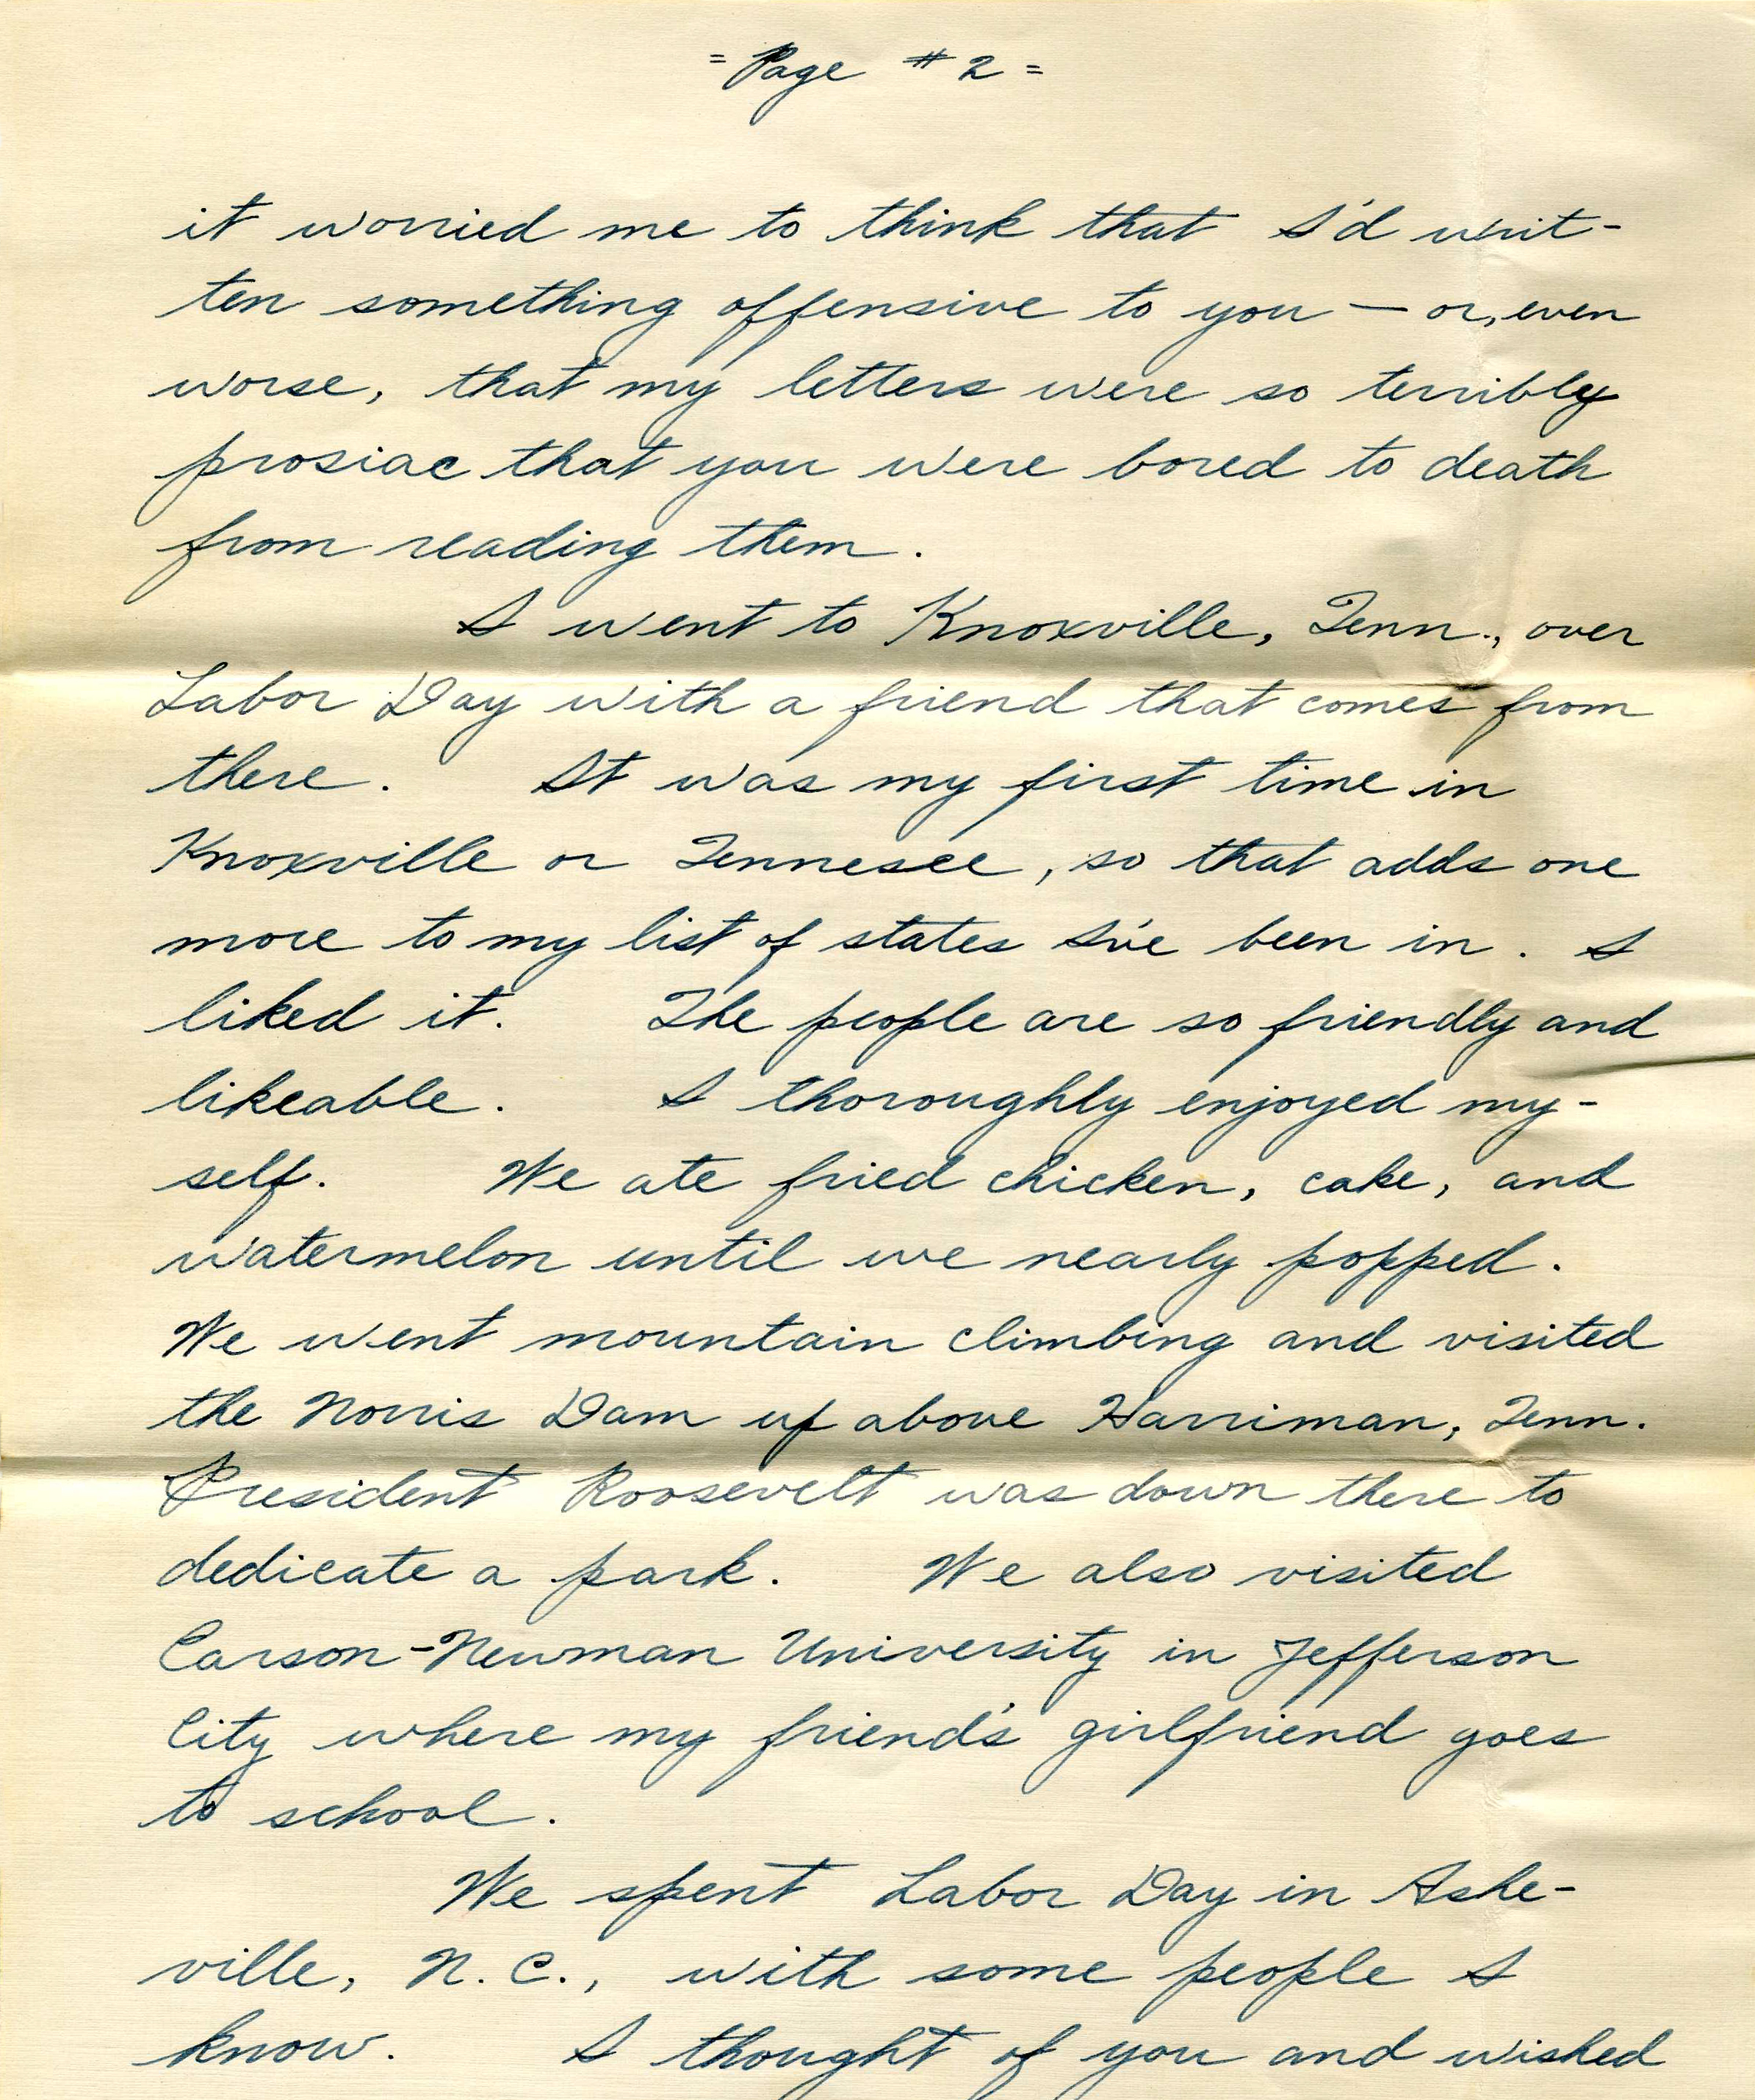 = Page # 2 =
it worried me to think that I'd writ-
ten something offensive to you — or, even
worse, that my letters were so terribly
prosiac that you were bored to death
from reading them.
I went to Knoxville, Tenn., over
Labor Day with a friend that comes from
there. It was my first time in
Knoxville or Tennesee, so that adds one
more to my list of states I've been in. I
liked it. The people are so friendly and
likeable. I thoroughly enjoyed my-
self. We ate fried chicken, cake, and
watermelon until we nearly popped.
We went mountain climbing and visited
the Norris Dam up above Harriman, Tenn.
President Roosevelt was down there to
dedicate a park. We also visited
Carson-Newman University in Jefferson
City where my friend's girlfriend goes
to school.
We spent Labor Day in Ashe-
ville, N. C., with some people I
know. I thought of you and wished